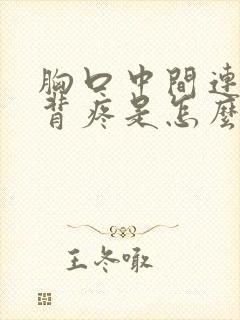 胸口中間連
背疼是怎麼
王冬噉